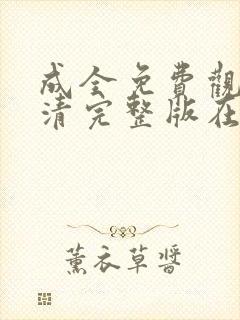 成全免費觀
清完整版在
薰衣草醬